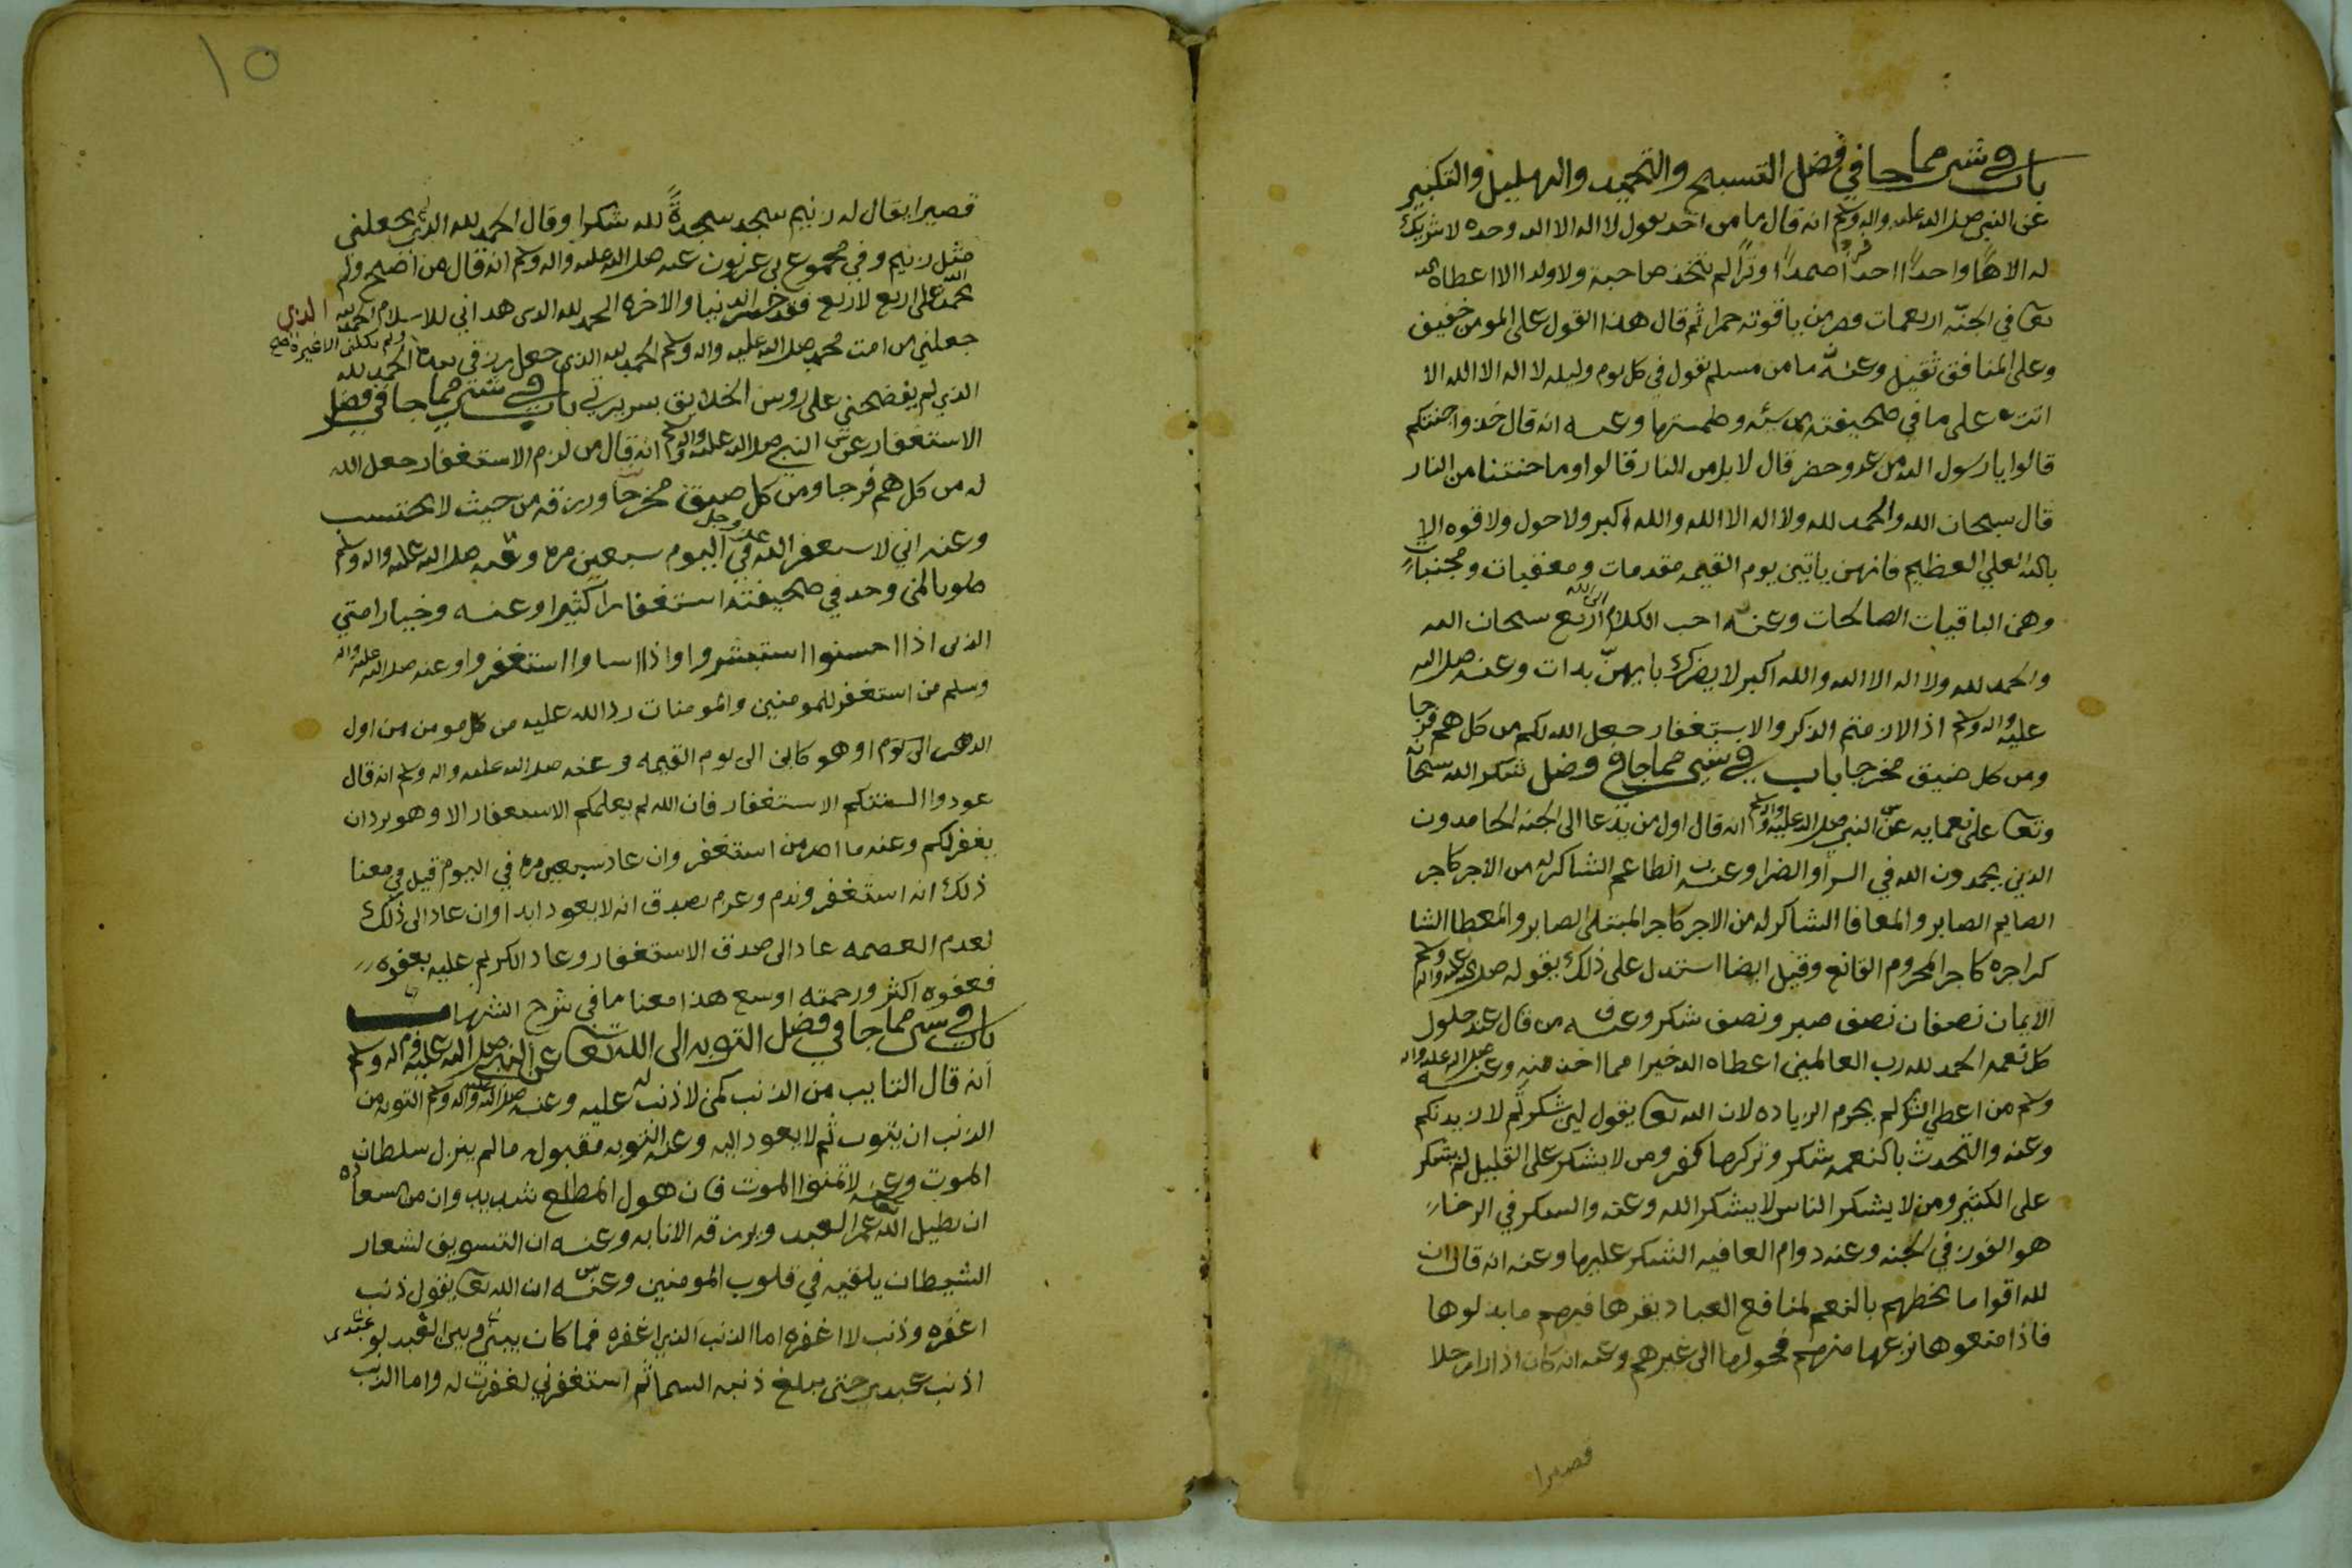 باب في شي مما جا في فضل التسبيح والتحميد والتهليل والتكبير
عن النبي صلى الله عليه واله وسلم انه قال ما من احد يقول لا اله الا الله وحده لا شريك
له الاهًا واحدًا احدًا صمدًا وترًا لم يتخذ صاحبة ولا ولدا الا اعطاه الله
تعا في الجنه اربعمات قصر من ياقوته حمرا ثم قال هذا القول على المومن خفيف
وعلى المنافق ثقيل وعنه ما من مسلم يقول في كل يوم وليله لا اله الا الله الا
اتت على ما في صحيفته من سيئه وطمستها وعنه انه قال خذوا جنتكم
قالوا يا رسول الله من عدو حضر قال لا بل من النار قالوا وما جنتنا من النار
قال سبحان الله والحمد لله ولا اله الا الله والله اكبر ولا حول ولا قوه الا
بالله العلي العظيم فانهن ياتين يوم القيمه مقدمات ومعقبات ومجنبات
وهن الباقيات الصالحات وعنه احب الكلام الى الله اربع سبحان الله
والحمد لله ولا اله الا الله والله اكبر لا يضرك بايهنّ بدات وعنه صلى الله
عليه واله وسلم اذ الازمتم الذكر والاستغفار جعل الله لكم من كل هم فرجا
ومن كل ضيق مخرجا باب في شي مما جا في فضل شكر الله سبحانه
وتعا على نعمايه عن النبي صلى الله عليه واله وسلم انه قال اول من يدعا الى الجنه الحامدون
الذين يحمدون الله في السرا والضرا وعنه الطاعم الشاكر له من الاجر كاجر
الصايم الصابر والمعافا الشاكر له من الاجر كاجر المبتلى الصابر والمعطا الشا
كر اجره كاجر المحروم القانع وقيل ايضا استدل على ذلك بقوله صلى الله عليه واله وسلم
الايمان نصفان نصف صبر ونصف شكر وعنه من قال عند حلول
كل نعمه الحمد لله رب العالمين اعطاه الله خيرا مما اخذ منه وعنه صلى الله عليه واله
وسلم من اعطي الشكر لم يحرم الزياده لان الله تعا يقول لين شكرتم لازيدنكم
وعنه والتحدث بالنعمه شكر وتركها كفر ومن لا يشكر على القليل لم يشكر
على الكثير ومن لا يشكر الناس لا يشكر الله وعنه والشكر في الرخا
هو الفوز في الجنه وعنه دوام العافيه الشكر عليها وعنه انه قال ان
لله اقواما يخطهم بالنعم لمنافع العباد يقرها فيهم ما بذلوها
فاذا منعوها نزعها منهم فحولها الى غيرهم وعنه انه كان اذا را رجلا
قصيرا
١٥
قصيرا يقال له زنيم سجد سجدةً لله شكرا وقال الحمد لله الذي لم يجعلني
مثل زنيم وفي مجموع عنه صلى الله عليه واله وسلم انه قال من اصبح ولم
يحمد الله على اربع لاربع فقد خسر الدنيا والاخره الحمد لله الذي هداني للاسلام الحمد لله الذي
جعلني من امت محمد صلى الله عليه واله وسلم الحمد لله الذي جعل رزقي بيده ولم يكلني الا غيره صح الحمد لله
الذي لم يفضحني على روس الخلايق بسريرتي باب في شي مما جا في فضل
الاستغفار عن النبي صلى الله عليه واله وسلم انه قال من لزم الاستغفار جعل الله
له من كل هم فرجا ومن كل ضيق مخرجا ورزقه من حيث لا يحتسب
وعنه اني لاستغفر الله عز وجل في اليوم سبعين مره وعنه صلى الله عليه واله وسلم
طوبا لمن وجد في صحيفته استغفارا كثيرا وعنه وخيار امتي
الذين اذا احسنوا استبشروا واذا اساوا استغفروا وعنه صلى الله عليه واله
وسلم من استغفر للمومنين والمومنات رد الله عليه من كل مومن من اول
الدهر الى يوم او هو كاين الى يوم القيمه وعنه صلى الله عليه واله وسلم انه قال
عودوا السنتكم الاستغفار فان الله لم يعلمكم الاستغفار الا وهو يريد ان
يغفر لكم وعنه ما اصر من استغفر وان عاد سبعين مره في اليوم قيل في معنا
ذلك انه استغفر وندم وعزم بصدق انه لا يعود ابدا وان عاد الى ذلك
لعدم العصمه عاد الى صدق الاستغفار وعاد الكريم عليه بعفوه
فعفوه اكثر ورحمته اوسع هذا معنا ما في شرح الشهاب
باب في شي مما جا في فضل التوبه الى الله تعا عن النبي صلى الله عليه واله وسلم
انه قال التايب من الذنب كمن لا ذنب له عليه وعنه صلى الله عليه واله وسلم التوبه من
الذنب ان يتوب ثم لا يعود اليه وعنه التوبه مقبوله ما لم ينزل سلطان
الموت وعنه لا تمنوا الموت فان هول المطلع شديد وان من السعاده
ان يطيل الله تعا عمر العبد ويرزقه الانابه وعنه ان التسويف لشعار
الشيطان يلقيه في قلوب المومنين وعنه ان الله تعا يقول ذنب
اغفره وذنب لا اغفره اما الذنب الذي اغفره فما كان بيني وبين العبد لو
اذنب عبدي حتى يبلغ ذنبه السما ثم استغفرني لغفرت له واما الذنب